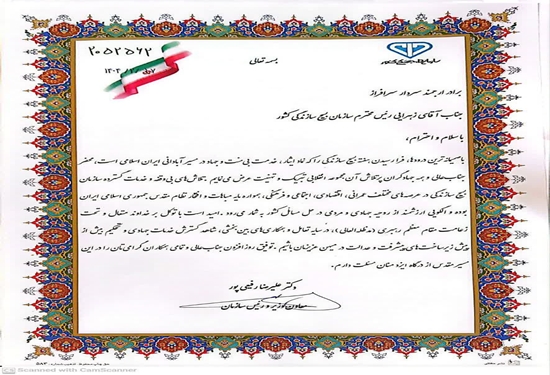 ۲۰۵۲۵۶۲
بسمه تعالی
برادر ارجمند سردار سرافراز
جناب آقای زهرایی رئیس محترم سازمان بسیج سازندگی کشور
با سلام و احترام؛
با صمیمانه ترین درودها، فرا رسیدن هفته بسیج سازندگی را که نماد ایثار، خدمت بی منت و جهاد در مسیر آبادانی ایران اسلامی است، محضر
جنابعالی و همه جهادگران پرتلاش آن مجموعه انقلابی تبریک و تهنیت عرض می نمایم. تلاش های بی وقفه و خدمات گسترده سازمان
بسیج سازندگی در عرصه های مختلف عمرانی، اقتصادی، اجتماعی و فرهنگی، همواره مایه مباهات و افتخار نظام مقدس جمهوری اسلامی ایران
بوده و الگویی ارزشمند از روحیه جهادی و مردمی در حل مسائل کشور به شمار می رود. امید است با توکل بر خداوند متعال و تحت
زعامت مقام معظم رهبری (مدظله العالی)، در سایه تعامل و همکاری های بین بخشی، شاهد گسترش خدمات جهادی و تحکیم بیش از
پیش زیرساخت های پیشرفت و عدالت در میهن عزیزمان باشیم. توفیق روزافزون جنابعالی و تمامی همکاران گرامی تان را در این
مسیر مقدس از درگاه ایزد منان مسئلت دارم.
دکتر علیرضا رفیعی پور
معاون وزیر و رئیس سازمان
Scanned with CamScanner